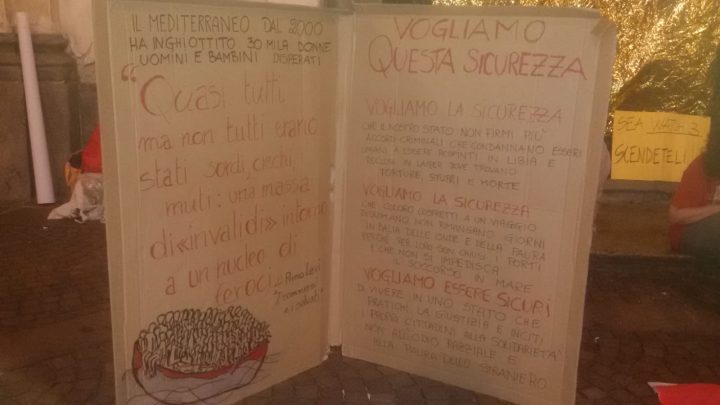 IL MEDITERRANEO DAL 2000
HA INGHIOTTITO 30 MILA DONNE
UOMINI E BAMBINI DISPERATI
"Quasi tutti
ma non tutti erano
stati sordi, ciechi
muti: una massa
di «invalidi» intorno
a un nucleo di
feroci"
Primo Levi
"I sommersi
e i salvati"
VOGLIAMO
QUESTA SICUREZZA
VOGLIAMO LA SICUREZZA
CHE IL NOSTRO STATO NON FIRMI PIÙ
ACCORDI CRIMINALI CHE CONDANNANO ESSERI
UMANI A ESSERE RESPINTI IN LIBIA E
RECLUSI IN LAGER DOVE TROVANO
TORTURE, STUPRI E MORTE
VOGLIAMO LA SICUREZZA
CHE COLORO COSTRETTI A UN VIAGGIO
DISUMANO NON RIMANGANO GIORNI
IN BALIA DELLE ONDE E DELLA PAURA
PERCHÉ PER LORO SON CHIUSI I PORTI
E CHE NON SI IMPEDISCA
IL SOCCORSO IN MARE
VOGLIAMO ESSERE SICURI
DI VIVERE IN UNO STATO CHE
PRATICHI LA GIUSTIZIA E INCITI
I PROPRI CITTADINI ALLA SOLIDARIETA'
NON ALL'ODIO RAZZIALE E
ALLA PAURA DELLO STRANIERO
SEA WATCH 3
SCENDETELI!